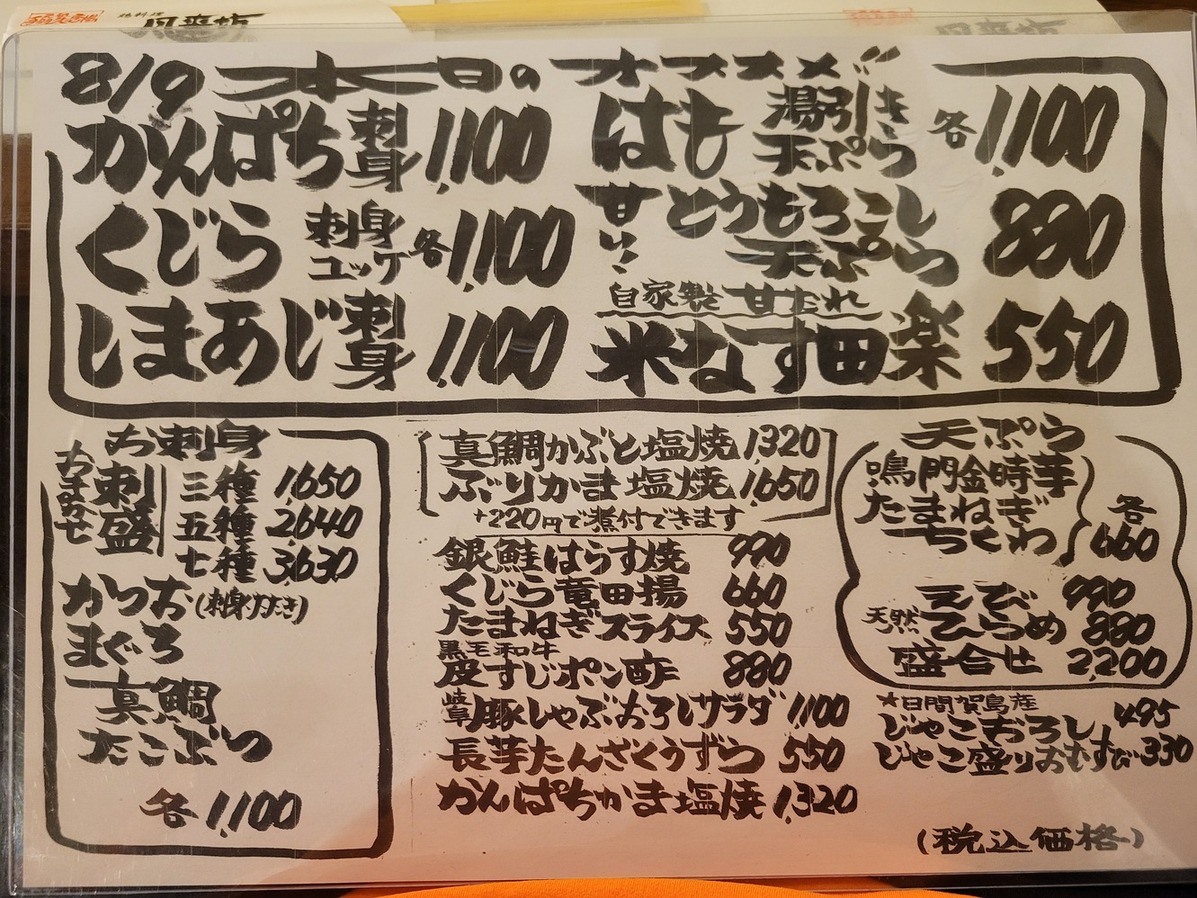 風来坊
8/9 本日のオススメ〃
かんぱち 刺身 1,100
くじら 刺身 ユッケ 各1,100
しまあじ 刺身 1,100
はも 湯引き 天ぷら 各1,100
甘い! とうもろこし 天ぷら 880
自家製 甘だれ
米なす田楽 550
お刺身
おまかせ 刺盛
三種 1,650
五種 2,640
七種 3,630
かつお (刺身/たたき)
まぐろ
真鯛
たこぶつ
各1,100
真鯛かぶと塩焼 1320
ぶりかま塩焼 1,650
+220円で煮付できます
銀鮭はらす焼 990
くじら竜田揚 660
たまねぎスライス 550
黒毛和牛
皮すじポン酢 880
岐阜豚しゃぶおろしサラダ 1100
長芋たんざくうずら 550
かんぱちかま塩焼 1,320
天ぷら
鳴門金時芋
たまねぎ
ちくわ
各660
えび 990
天然ひらめ 880
盛合せ 2,200
★日間賀島産
じゃこおろし 495
じゃこ盛りおむすび 330
(税込価格)